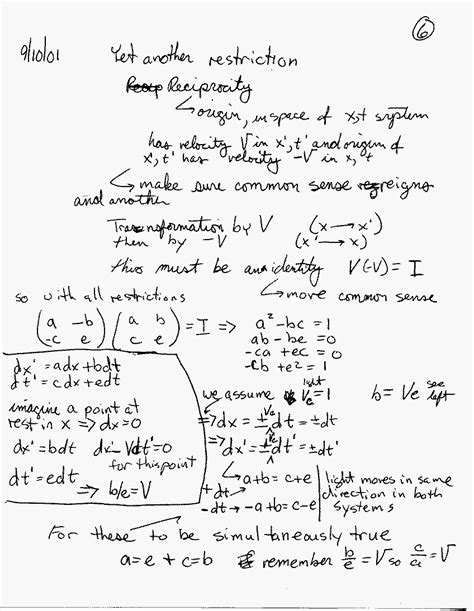 6
9/10/01 Yet another restriction
Reciprocity
↳ origin, in space of x,t system
has velocity V in x',t' and origin of
x',t' has velocity -V in x,t
↳ make sure common sense reigns
and another
Transformation by V (x → x')
then by -V (x' → x)
this must be an identity V(-V) = I
↳ more common sense
so with all restrictions
(a -b / -c e) (a b / c e) = I => a² - bc = 1
ab - be = 0
-ca + ec = 0
-cb + e² = 1
dx' = adx + bdt
dt' = cdx + edt
imagine a point at
rest in x => dx = 0
dx' = bdt dx' - Vdt' = 0
for this point
dt' = edt
=> b/e = V
we assume light Ve = 1 b = Ve see left
=> dx = ± Ve dt = ± dt
=> dx' = ± Ve dt' = ± dt'
+dt → a + b = c + e
-dt → -a + b = c - e
light moves in same
direction in both
systems
For these to be simultaneously true
a = e + c = b remember b/e = V so c/a = V